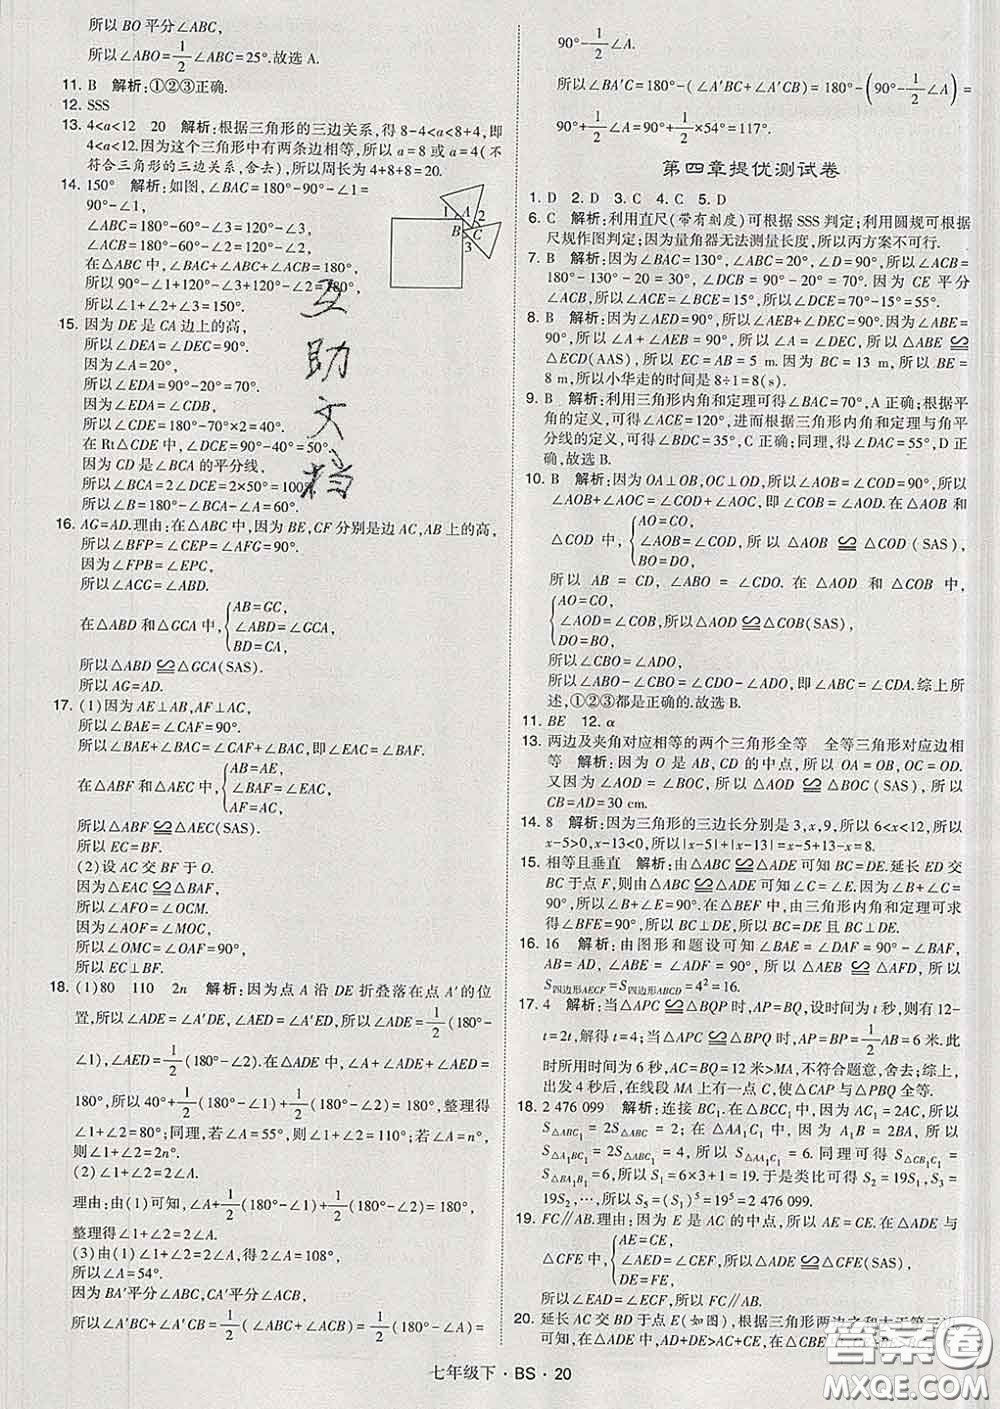 所以 BO 平分∠ABC,
所以∠ABO=1/2∠ABC=25°.故选 A.
11. B 解析:①②③正确.
12. SSS
13. 4<a<12 20 解析:根据三角形的三边关系,得 8-4<a<8+4,即
4<a<12.因为这个三角形中有两条边相等,所以 a=8 或 a=4(不
符合三角形的三边关系,舍去),所以周长为 4+8+8=20.
14. 150° 解析:如图,∠BAC=180°-90°-∠1=
90°-∠1,
∠ABC=180°-60°-∠3=120°-∠3,
∠ACB=180°-60°-∠2=120°-∠2,
在△ABC 中,∠BAC+∠ABC+∠ACB=180°,
所以 90°-∠1+120°-∠3+120°-∠2=180°,
所以∠1+∠2+∠3=150°.
1 A 2 B C 3
15. 因为 DE 是 CA 边上的高,
所以∠DEA=∠DEC=90°.
因为∠A=20°,
所以∠EDA=90°-20°=70°.
因为∠EDA=∠CDB,
所以∠CDE=180°-70°×2=40°.
在 Rt△CDE 中,∠DCE=90°-40°=50°.
因为 CD 是∠BCA 的平分线,
所以∠BCA=2∠DCE=2×50°=100°.
所以∠B=180°-∠BCA-∠A=60°.
16. AG=AD.理由:在△ABC 中,因为 BE,CF 分别是边 AC,AB 上的高,
所以∠BFP=∠CEP=∠AFG=90°.
因为∠FPB=∠EPC,
所以∠ACG=∠ABD.
在△ABD 和△GCA 中,{AB=GC,
∠ABD=∠GCA,
BD=CA,
所以△ABD≌△GCA(SAS).
所以 AG=AD.
17. (1)因为 AE⊥AB,AF⊥AC,
所以∠BAE=∠CAF=90°.
所以∠BAE+∠BAC=∠CAF+∠BAC,即∠EAC=∠BAF.
在△ABF 和△AEC 中,{AB=AE,
∠BAF=∠EAC,
AF=AC,
所以△ABF≌△AEC(SAS).
所以 EC=BF.
(2)设 AC 交 BF 于 O.
因为△EAC≌△BAF,
所以∠AFO=∠OCM.
因为∠AOF=∠MOC,
所以∠OMC=∠OAF=90°.
所以 EC⊥BF.
18. (1)80 110 2n 解析:因为点 A 沿 DE 折叠落在点 A′的位
置,所以∠ADE=∠A′DE,∠AED=∠A′ED.所以∠ADE=1/2(180°-
∠1),∠AED=1/2(180°-∠2).在△ADE 中,∠A+∠ADE+∠AED=
180°,所以 40°+1/2(180°-∠1)+1/2(180°-∠2)=180°,整理得
∠1+∠2=80°;同理,若∠A=55°,则∠1+∠2=110°;若∠A=n°,
则∠1+∠2=2n°.
(2)∠1+∠2=2∠A.
理由:由(1)可知,∠A+1/2(180°-∠1)+1/2(180°-∠2)=180°,
整理得∠1+∠2=2∠A.
(3)由(1)∠1+∠2=2∠A,得 2∠A=108°,
所以∠A=54°.
因为 BA′平分∠ABC,CA′平分∠ACB,
所以∠A′BC+∠A′CB=1/2(∠ABC+∠ACB)=1/2(180°-∠A)=
90°-1/2∠A.
所以∠BA′C=180°-(∠A′BC+∠A′CB)=180°-(90°-1/2∠A)=
90°+1/2∠A=90°+1/2×54°=117°.
第四章提优测试卷
1. D 2. D 3. C 4. C 5. D
6. C 解析:利用直尺(带有刻度)可根据 SSS 判定;利用圆规可根据
尺规作图判定;因为量角器无法测量长度,所以丙方案不可行.
7. B 解析:因为∠BAC=130°,∠ABC=20°,∠D=90°,所以∠ACB=
180°-130°-20°=30°,∠DCB=90°-20°=70°.因为 CE 平分
∠ACB,所以∠BCE=15°,所以∠DCE=70°-15°=55°.
8. B 解析:因为∠AED=90°,所以∠AEB+∠DEC=90°.因为∠ABE=
90°,所以∠A+∠AEB=90°,所以∠A=∠DEC,所以△ABE≌
△ECD(AAS),所以 EC=AB=5 m.因为 BC=13 m,所以 BE=
8 m,所以小华走的时间是 8÷1=8(s).
9. B 解析:利用三角形内角和定理可得∠BAC=70°,A 正确;根据平
角的定义,可得∠ACE=120°,进而根据三角形内角和定理与角平
分线的定义,可得∠BDC=35°,C 正确;同理,得∠DAC=55°,D 正
确,故选 B.
10. B 解析:因为 OA⊥OB,OC⊥OD,所以∠AOB=∠COD=90°,所以
∠AOB+∠AOC=∠COD+∠AOC,即∠COB=∠AOD.在△AOB 和
△COD 中,{AO=CO,
∠AOB=∠COD,
BO=DO,
所以△AOB≌△COD(SAS),
所以 AB=CD,∠ABO=∠CDO.在△AOD 和△COB 中,
{AO=CO,
∠AOD=∠COB,
DO=BO,
所以△AOD≌△COB(SAS),
所以∠CBO=∠ADO,
所以∠ABO-∠CBO=∠CDO-∠ADO,即∠ABC=∠CDA.综上所
述,①②③都是正确的.故选 B.
11. BE 12. α
13. 两边及夹角对应相等的两个三角形全等 全等三角形对应边相
等 解析:因为 O 是 AB,CD 的中点,所以 OA=OB,OC=OD.
又因为∠AOD=∠BOC,所以△AOD≌△BOC(SAS),所以
CB=AD=30 cm.
14. 8 解析:因为三角形的三边长分别是 3,x,9,所以 6<x<12,所以
x-5>0,x-13<0,所以|x-5|+|x-13|=x-5+13-x=8.
15. 相等且垂直 解析:由△ABC≌△ADE 可知 BC=DE.延长 ED 交
BC 于点 F,则由△ABC≌△ADE 可知∠C=∠E.因为∠B+∠C=
90°,所以∠B+∠E=90°.在△BEF 中,由三角形内角和定理可求
得∠BFE=90°,所以 BC⊥DE,所以 BC=DE 且 BC⊥DE.
16. 16 解析:由图形和题设可知∠BAE=∠DAF=90°-∠BAF,
AB=AD,∠ABE=∠D=90°,所以△ABE≌△ADF(ASA),所以
S四边形AECF=S四边形ABCD=4²=16.
17. 4 解析:当△APC≌△BQP 时,AP=BQ,设时间为 t 秒,则有 12-
t=2t,解得 t=4;当△APC≌△BPQ 时,AP=BP=1/2AB=6 米,此
时所用时间为 6 秒,AC=BQ=12 米>MA,不符合题意,舍去;综上,
出发 4 秒后,在线段 MA 上有一点 C,使△CAP 与△PBQ 全等.
18. 2 476 099 解析:连接 BC₁.在△BCC₁ 中,因为 AC₁=2AC,所以
S△ABC₁=2S△ABC=2;在△AA₁C₁ 中,因为 A₁B=2BA,所以
S△A₁BC₁=2S△ABC₁=4,所以 S△AA₁C₁=6.同理可得 S△CB₁C₁=
S△BA₁B₁=6,所以 S₁=6×3+1=19.于是类比可得 S₂=19S₁,S₃=
19S₂,…,所以 S₅=(S₁)⁵=19⁵=2 476 099.
19. FC∥AB.理由:因为 E 是 AC 的中点,所以 AE=CE.在△ADE 与
△CFE 中,{AE=CE,
∠AED=∠CEF,所以△ADE≌△CFE(SAS),
DE=FE,
所以∠EAD=∠ECF,所以 FC∥AB.
20. 延长 AC 交 BD 于点 E(如图),根据三角形两边之和大于第三边
可知,在△ADE 中,AD+DE>AC+CE,在△CBE
互助文档
答案圈
MXQE.COM
七年级下·BS·20